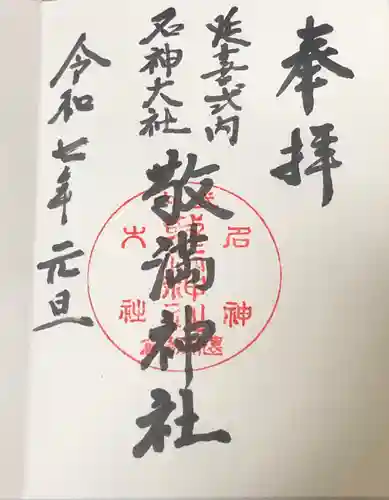 奉拝
延喜式内
名神大社
敬満神社
令和七年元旦
名神
大社